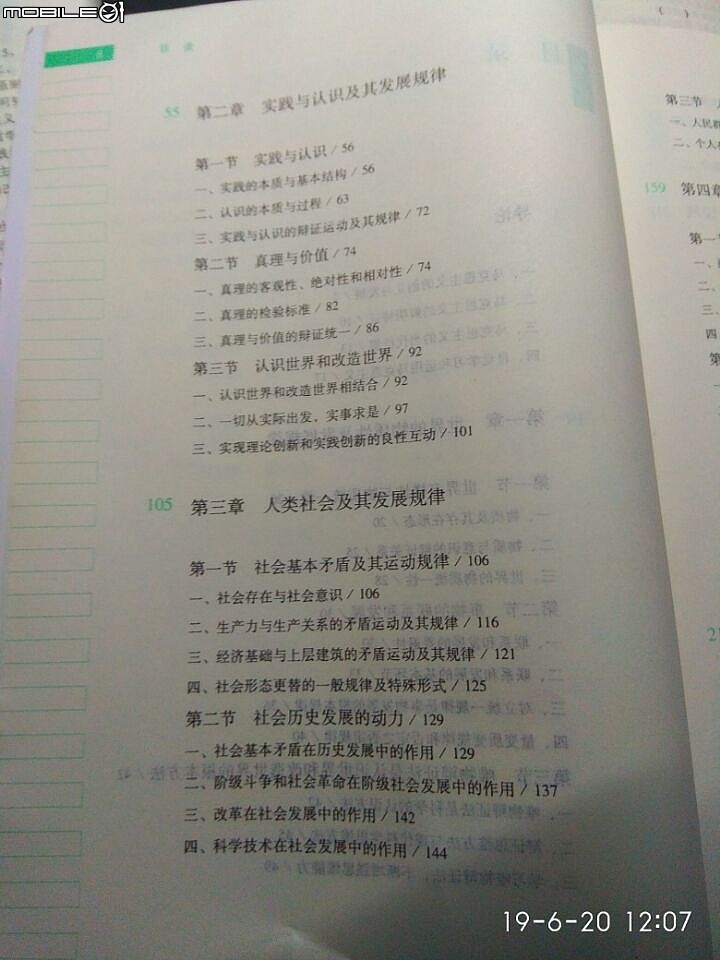 MOBILE01
目 录
55 第二章 实践与认识及其发展规律
第一节 实践与认识 / 56
一、实践的本质与基本结构 / 56
二、认识的本质与过程 / 63
三、实践与认识的辩证运动及其规律 / 72
第二节 真理与价值 / 74
一、真理的客观性、绝对性和相对性 / 74
二、真理的检验标准 / 82
三、真理与价值的辩证统一 / 86
第三节 认识世界和改造世界 / 92
一、认识世界和改造世界相结合 / 92
二、一切从实际出发，实事求是 / 97
三、实现理论创新和实践创新的良性互动 / 101
105 第三章 人类社会及其发展规律
第一节 社会基本矛盾及其运动规律 / 106
一、社会存在与社会意识 / 106
二、生产力与生产关系的矛盾运动及其规律 / 116
三、经济基础与上层建筑的矛盾运动及其规律 / 121
四、社会形态更替的一般规律及特殊形式 / 125
第二节 社会历史发展的动力 / 129
一、社会基本矛盾在历史发展中的作用 / 129
二、阶级斗争和社会革命在阶级社会发展中的作用 / 137
三、改革在社会发展中的作用 / 142
四、科学技术在社会发展中的作用 / 144
第三节
一、人民群
二、个人在
159 第四章
第一节
一、
二、
三、
四
第
19-6-20 12:07